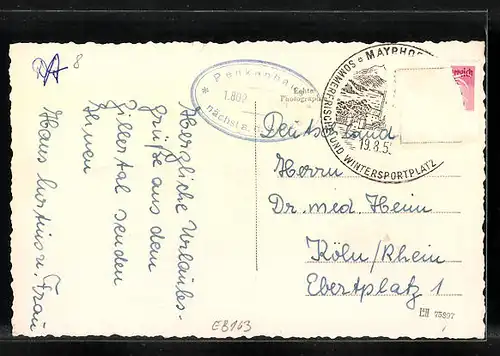 8
Herzliche Urlaubs-
grüße aus dem
Zillertal senden
Ihnen
Hans Curtius u. Frau
Penkenhaus
1.802
nächst a.
Echte
Photographie
MAYRHOFEN
SOMMERFRISCHE UND WINTERSPORTPLATZ
19.8.5
reich
Deutschland
Herrn
Dr. med. Heim
Köln/Rhein
Ebertplatz 1
75897
EB163